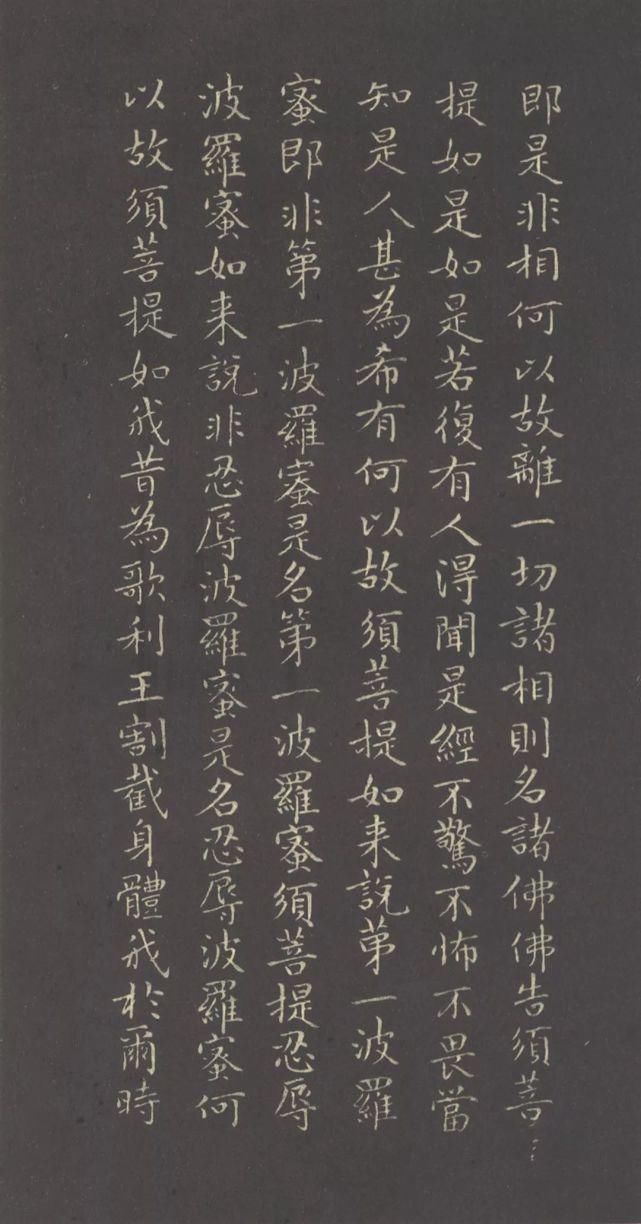 即是非相何以故離一切諸相則名諸佛佛告須菩
提如是如是若復有人得聞是經不驚不怖不畏當
知是人甚為希有何以故須菩提如来說苐一波羅
蜜即非第一波羅蜜是名第一波羅蜜須菩提忍辱
波羅蜜如来說非忍辱波羅蜜是名忍辱波羅蜜何
以故須菩提如我昔為歌利王割截身體我於爾時